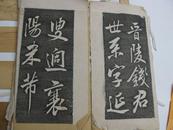 晋陵錢君
世系字延
叟迥襄
陽米芾